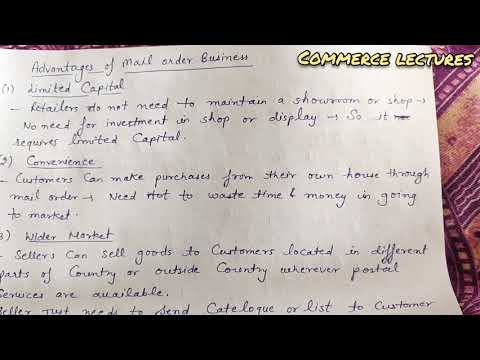 COMMERCE LECTURES
Advantages of Mail order Business
(1) Limited Capital
- Retailers do not need to maintain a showroom or shop →
No need for investment in shop or display → So it
requires limited Capital.
(2) Convenience
- Customers Can make purchases from their own house through
mail order → Need Not to waste time & money in going
to market.
3) Wider Market
- Sellers Can sell goods to Customers located in different
parts of Country or outside Country wherever postal
Services are available.
Seller Just needs to Send Catelogue or list to Customer